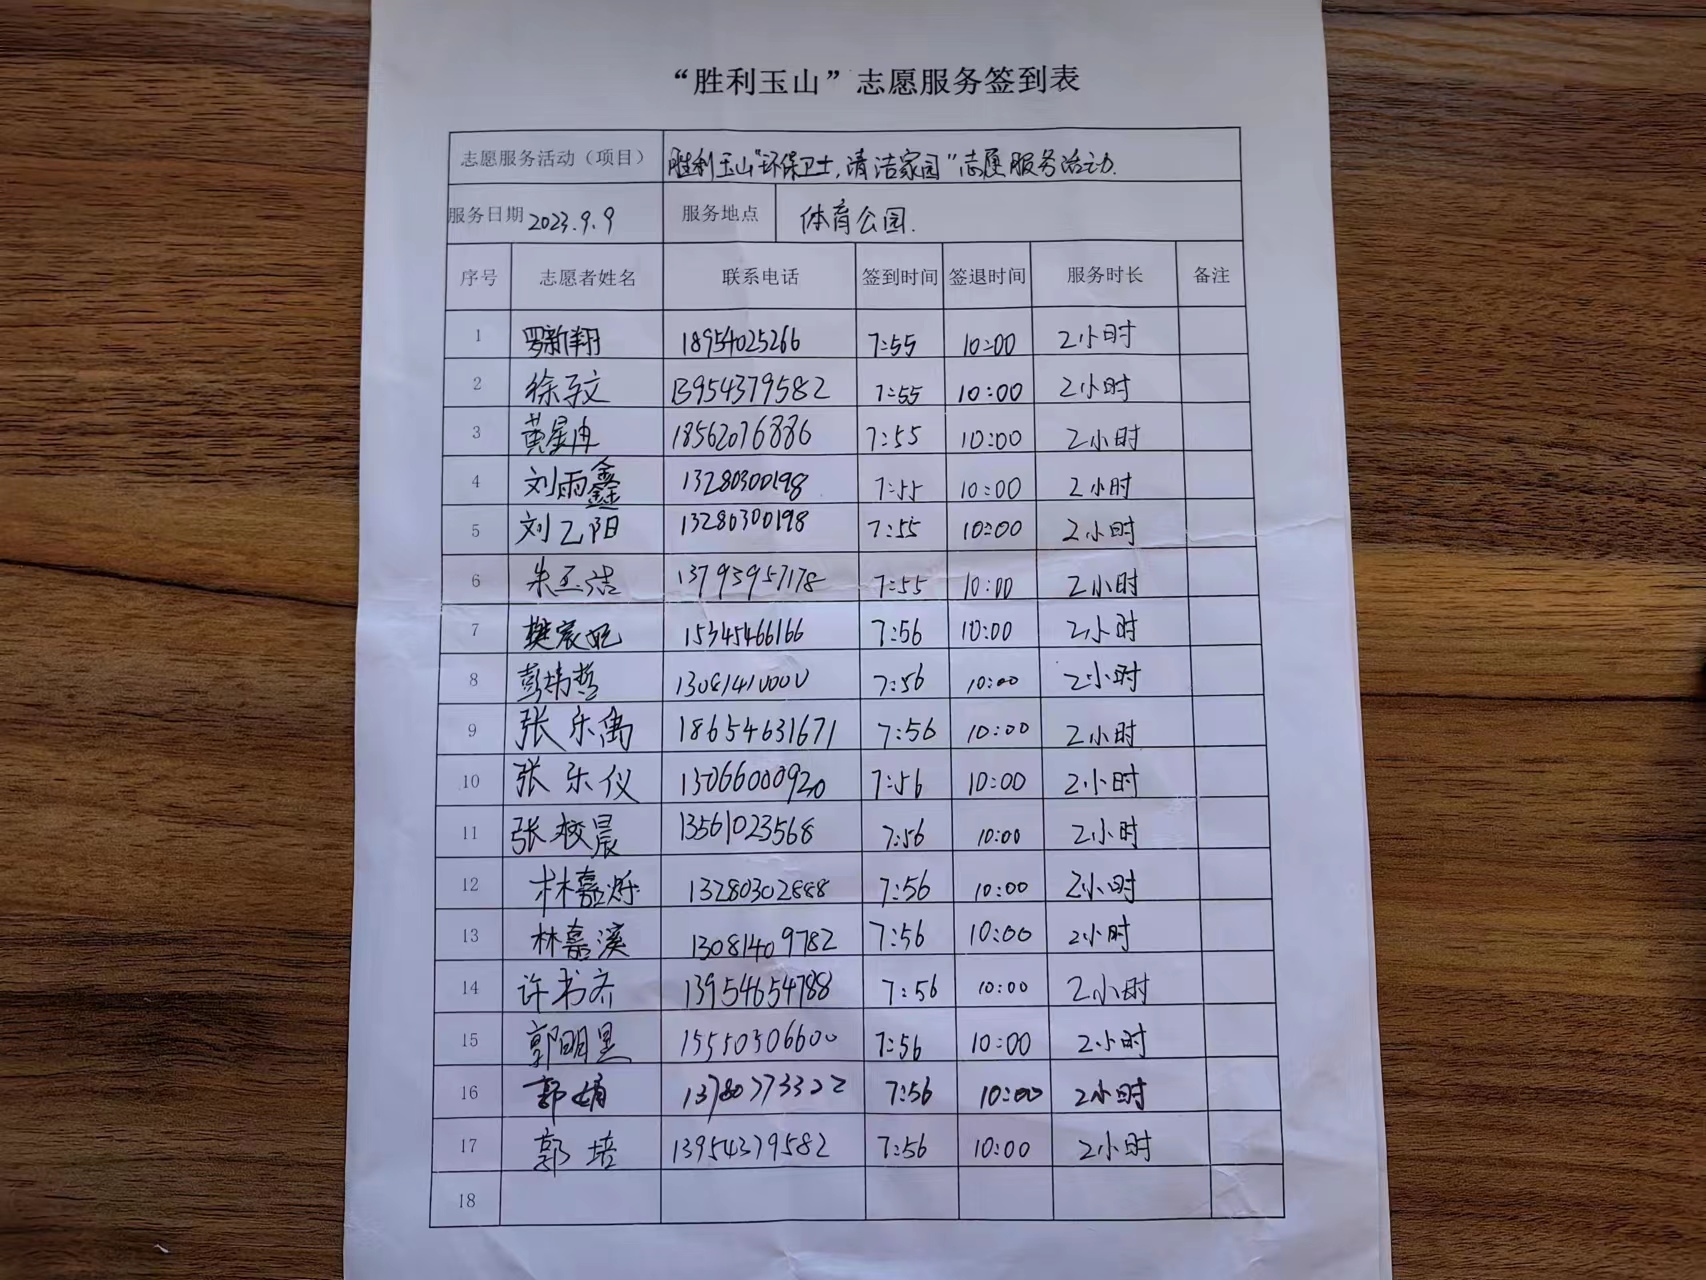 “胜利玉山”志愿服务签到表
志愿服务活动（项目） 胜利玉山“环保卫士，清洁家园”志愿服务活动.
服务日期 2023.9.9 服务地点 体育公园.
序号 志愿者姓名 联系电话 签到时间 签退时间 服务时长 备注
1 罗新翔 18954025266 7:55 10:00 2小时
2 徐文 13954379582 7:55 10:00 2小时
3 黄星冉 18562076886 7:55 10:00 2小时
4 刘雨鑫 13280300198 7:55 10:00 2小时
5 刘乙阳 13280300198 7:55 10:00 2小时
6 朱玉洁 13793957178 7:55 10:00 2小时
7 樊宸妃 15345466166 7:56 10:00 2小时
8 彭 哲 13081410000 7:56 10:00 2小时
9 张乐禹 18654631671 7:56 10:00 2小时
10 张乐仪 13066000920 7:56 10:00 2小时
11 张 晨 13561023568 7:56 10:00 2小时
12 林嘉烁 13280302888 7:56 10:00 2小时
13 林嘉溪 13081409782 7:56 10:00 2小时
14 许书齐 13954654788 7:56 10:00 2小时
15 郭明昊 15550506600 7:56 10:00 2小时
16 郭娟 13780773322 7:56 10:00 2小时
17 郭培 13954379582 7:56 10:00 2小时
18